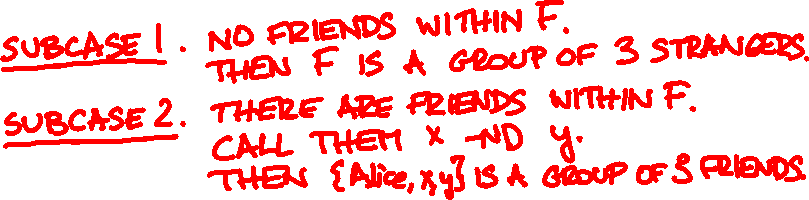 SUBCASE 1. NO FRIENDS WITHIN F.
THEN F IS A GROUP OF 3 STRANGERS.
SUBCASE 2. THERE ARE FRIENDS WITHIN F.
CALL THEM x AND y.
THEN {Alice, x, y} IS A GROUP OF 3 FRIENDS.